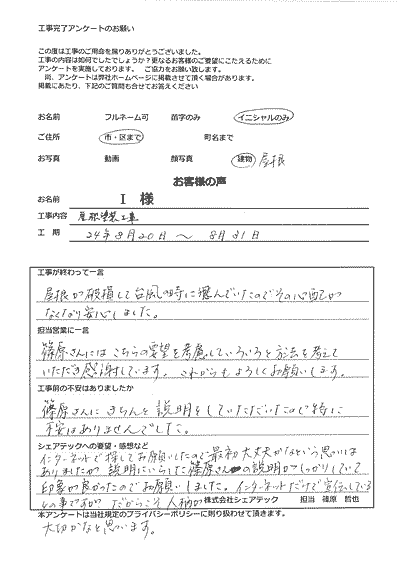 工事完了アンケートのお願い
この度は工事のご用命を賜りありがとうございました。
工事の内容は如何でしたでしょうか？更なるお客様のご要望にこたえるために
アンケートを実施しております。 ご協力をお願い致します。
尚、アンケートは弊社ホームページに掲載させて頂く場合があります。
掲載にあたり、下記のご質問も合せてお答えください
お名前 フルネーム可 苗字のみ イニシャルのみ
ご住所 市・区まで 町名まで
お写真 動画 顔写真 建物 屋根
お客様の声
お名前 I 様
工事内容 屋根塗装工事
工 期 24年8月20日 ～ 8月31日
工事が終わって一言
屋根が破損して台風の時に悩んでいたのでその心配が
なくなり安心しました。
担当営業に一言
篠原さんにはこちらの要望を考慮していろいろと方法を考えて
いただき感謝しています。これからもよろしくお願いします。
工事前の不安はありましたか
篠原さんにきちんと説明をしていただいたので特に
不安はありませんでした。
シェアテックへの要望・感想など
インターネットで探してお願いしたので最初大丈夫かなという思いは
ありましたが説明にいらした篠原さんの説明がしっかりしていて
印象が良かったのでお願いしました。インターネットだけで宣伝している
との事ですが だからこそ人柄が
株式会社シェアテック 担当 篠原 哲也
本アンケートは当社規定のプライバシーポリシーに則り扱わせて頂きます。
大切かなと思います。